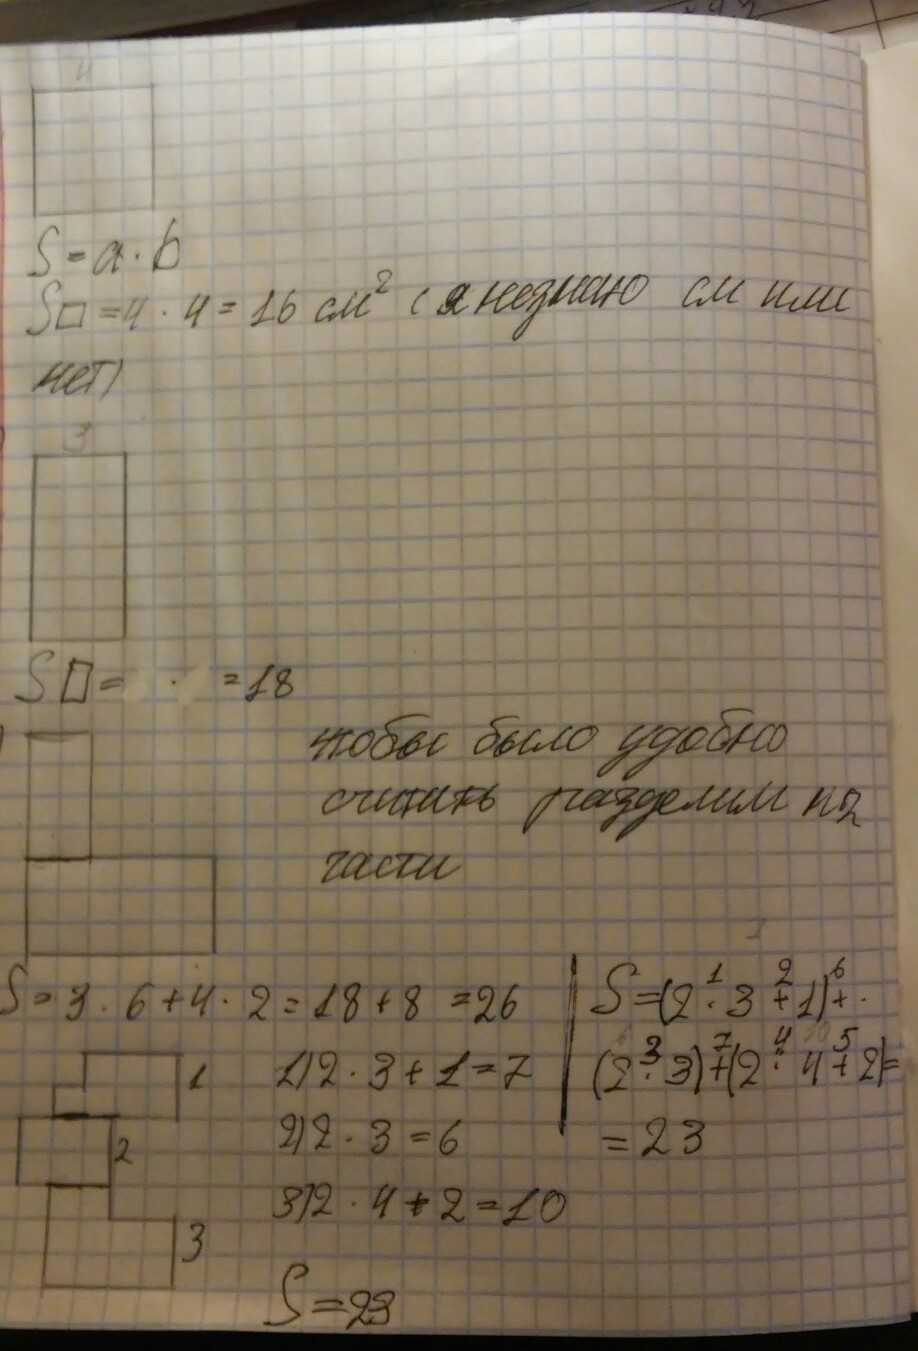 4
S = a · b
S□ = 4 · 4 = 16 см² (я незнаю см или
нет)
3
S▯ = · = 18
чтобы было удобно
считать разделим на
части
S = 3 · 6 + 4 · 2 = 18 + 8 = 26
1
2
3
1) 2 · 3 + 1 = 7
2) 2 · 3 = 6
3) 2 · 4 + 2 = 10
S = 23
S = (2 · 3 + 1) + ·
(2 · 3) + (2 · 4 + 2) =
= 23